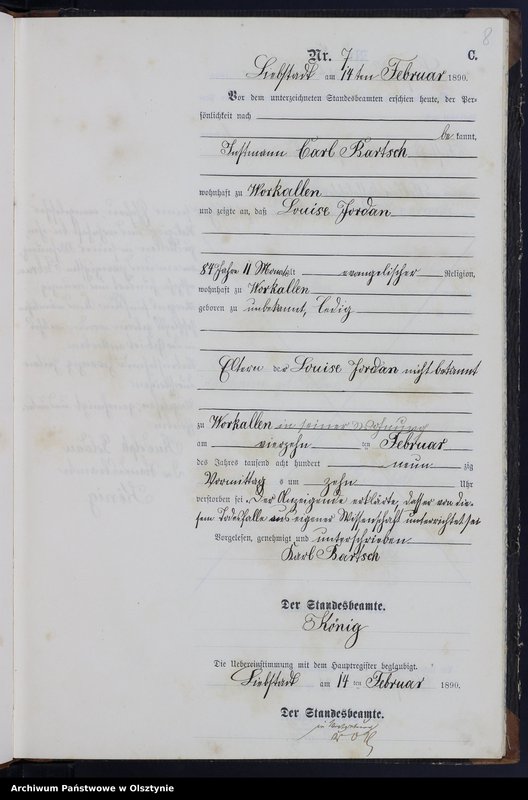 8
Nr. 7 C.
Liebstadt am 14 ten Februar 1890.
Vor dem unterzeichneten Standesbeamten erschien heute, der Per-
sönlichkeit nach
be kannt,
Instmann Carl Bartsch
wohnhaft zu Workallen
und zeigte an, daß Louise Jordan
84 Jahre 11 Monate alt evangelischer Religion,
wohnhaft zu Workallen
geboren zu unbekannt, ledig
Eltern der Louise Jordan nicht bekannt
zu Workallen in seiner Wohnung
am vierzehn ten Februar
des Jahres tausend acht hundert neun zig
Vormittag s um zehn Uhr
verstorben sei. Der Anzeigende erklärte, dasser von die-
sem Todesfalle aus eigener Wissenschaft unterrichtet sei
Vorgelesen, genehmigt und unterschrieben
Karl Bartsch
Der Standesbeamte.
König
Die Uebereinstimmung mit dem Hauptregister beglaubigt.
Liebstadt am 14 ten Februar 1890.
Der Standesbeamte.
in Vertretung
Archiwum Państwowe w Olsztynie